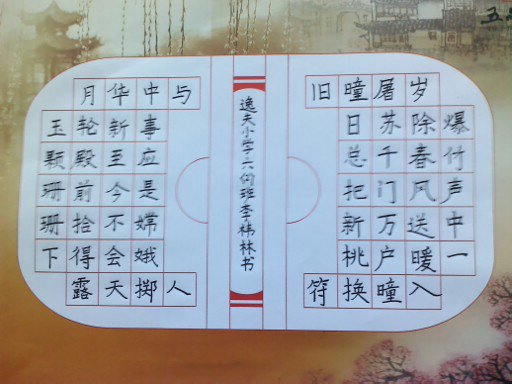 爆竹声中一
岁除春风送暖入
屠苏千门万户曈
曈日总把新桃换
旧符
逸夫小学六班李林书
玉颗珊珊下
月轮殿前拾得露
华新至今不会天
中事应是嫦娥掷
与人
五